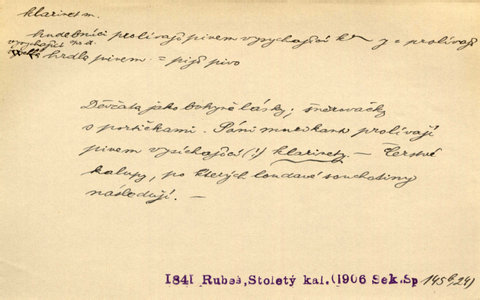 klarinet m.
hudebníci prolívají pivem vysychající k~y = prolívají
vysychající
hrdlo pivem = pijí pivo
Děvčata jako bohyně lásky; šněrovačky
s portičkami. Páni muzikank prolívají
pivem vysíchající (!) klarinety. — Čerstvé
kalupy, po kterých loudavé souchotiny
následují. —
1841 Rubeš, Stoletý kal. (1906 Sek. Sp 145b, 24)